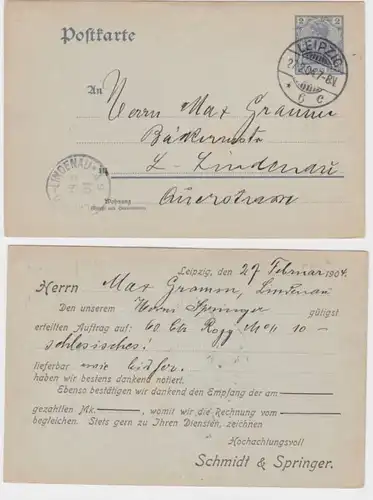 Postkarte
2 2
LEIPZIG
6 c
An Herrn Max Gramm
Bäckermstr.
L-Lindenau
LINDENAU
Wohnung
(Straße und Hausnummer)
Querstrasse
Leipzig, den 27 Februar 1904.
Herrn Max Gramm, Lindenau
Den unserem Herrn Springer gütigst
erteilten Auftrag auf: 60 Ctr Rogg Mehl 10 –
schlesisches!
lieferbar wie bisher.
haben wir bestens dankend notiert.
Ebenso bestätigen wir dankend den Empfang der am
gezahlten Mk. , womit wir die Rechnung vom
begleichen. Stets gern zu Ihren Diensten, zeichnen
Hochachtungsvoll
Schmidt & Springer.